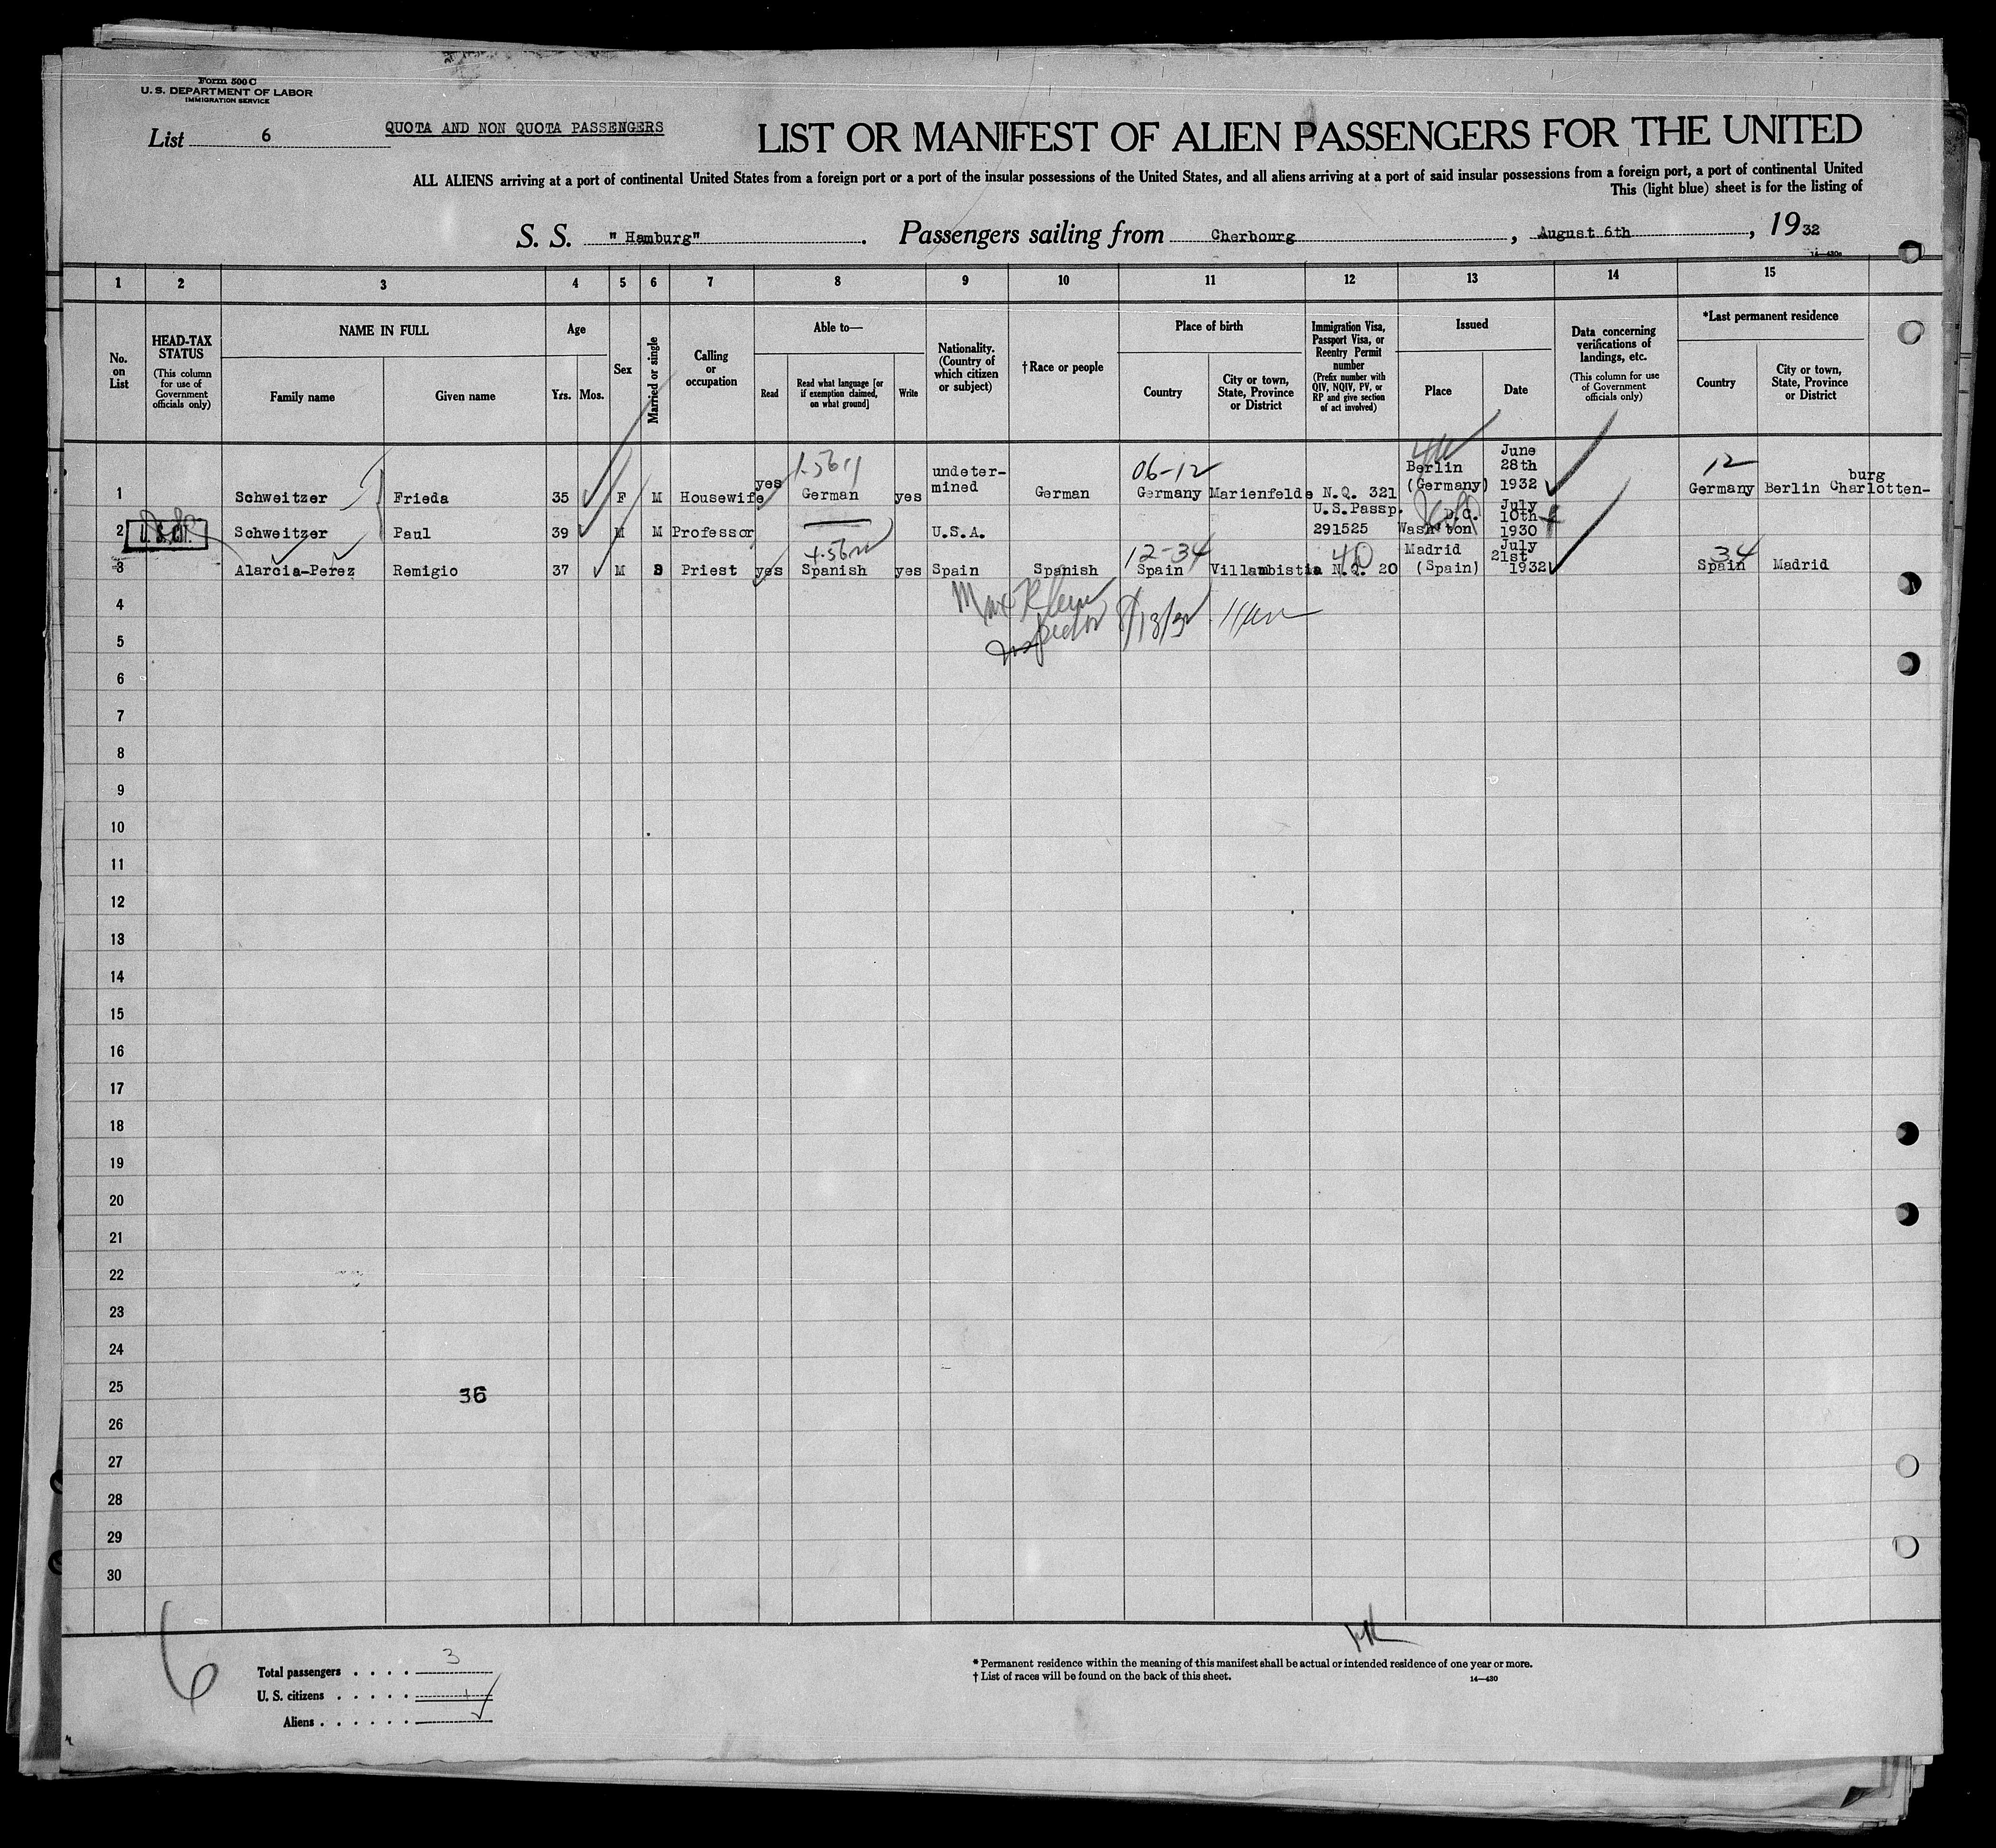 Form 500 C
U. S. DEPARTMENT OF LABOR
IMMIGRATION SERVICE
List 6
QUOTA AND NON QUOTA PASSENGERS
LIST OR MANIFEST OF ALIEN PASSENGERS FOR THE UNITED
ALL ALIENS arriving at a port of continental United States from a foreign port or a port of the insular possessions of the United States, and all aliens arriving at a port of said insular possessions from a foreign port, a port of continental United
This (light blue) sheet is for the listing of
S. S. "Hamburg". Passengers sailing from Cherbourg, August 6th, 1932
1 2 3 4 5 6 7 8 9 10 11 12 13 14 15
No. on List
HEAD-TAX STATUS
(This column for use of Government officials only)
NAME IN FULL
Family name
Given name
Age
Yrs. Mos.
Sex
Married or single
Calling or occupation
Able to—
Read
Read what language [or if exemption claimed, on what ground]
Write
Nationality. (Country of which citizen or subject)
†Race or people
Place of birth
Country
City or town, State, Province or District
Immigration Visa, Passport Visa, or Reentry Permit number
(Prefix number with QIV, NQIV, PV, or RP and give section of act involved)
Issued
Place
Date
Data concerning verifications of landings, etc.
(This column for use of Government officials only)
*Last permanent residence
Country
City or town, State, Province or District
1 Schweitzer Frieda 35 F M Housewife yes German yes undeter-mined German 06-12 Germany Marienfelde N.Q. 321 Berlin (Germany) June 28th 1932 12 Germany Berlin Charlotten-burg
2 U.S. CIT. Schweitzer Paul 39 M M Professor U.S.A. U.S.Passp. 291525 Wash'ton D.C. July 10th 1930
3 Alarcia-Perez Remigio 37 M S Priest yes Spanish yes Spain Spanish 12-34 Spain Villambistia N.Q. 20 40 Madrid (Spain) July 21st 1932 34 Spain Madrid
Max Klein
Inspector 8/13/32
4
5
6
7
8
9
10
11
12
13
14
15
16
17
18
19
20
21
22
23
24
25
36
26
27
28
29
30
6
Total passengers . . . . 3
U. S. citizens . . . . . 1
Aliens . . . . . .
* Permanent residence within the meaning of this manifest shall be actual or intended residence of one year or more.
† List of races will be found on the back of this sheet.
14—430